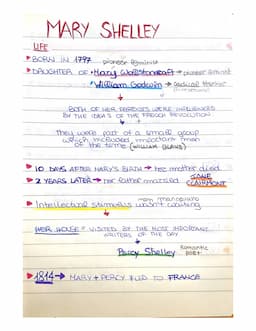 MARY SHELLEY
LIFE
BORN IN 1797 pioneer feminist
DAUGHTER OF • Mary Wollstonecraft → pioneer feminist
• William Godwin → radical thinker
BOTH OF HER PARENTS WERE INFLUENCED
BY THE IDEA'S OF THE FRENCH REVOLUTION
They were part of a small group
which included important men
of the time (WILLIAM BLAKE)
10 DAYS AFTER MARY'S BIRTH → the mother died
2 YEARS LATER → her father married JANE
CLAIRMONT
Intellectual stimulus wasn't wanting
HER HOUSE VISITED BY THE MOST IMPORTANT
WRITERS OF THE DAY
Percy Shelley Romantic
poet
1814 → MARY + PERCY FLED TO FRANCE